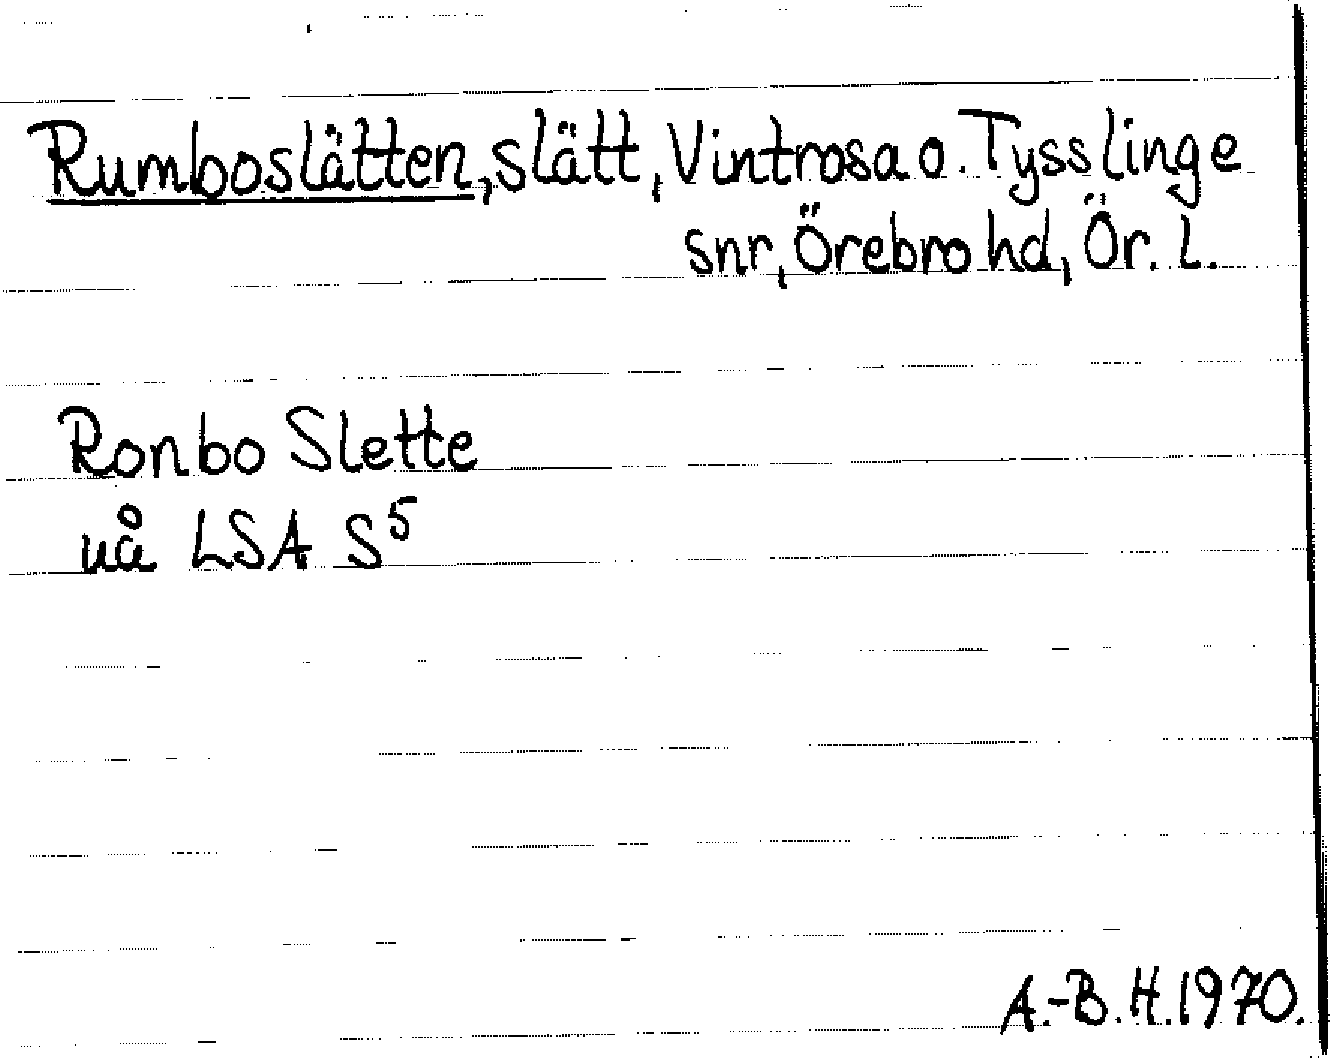 Rumboslätten, slätt, Vintrosa o. Tysslinge
snr, Örebro hd, Ör. L.
Ronbo Slette
uå LSA S⁵
A.-B. H. 1970.